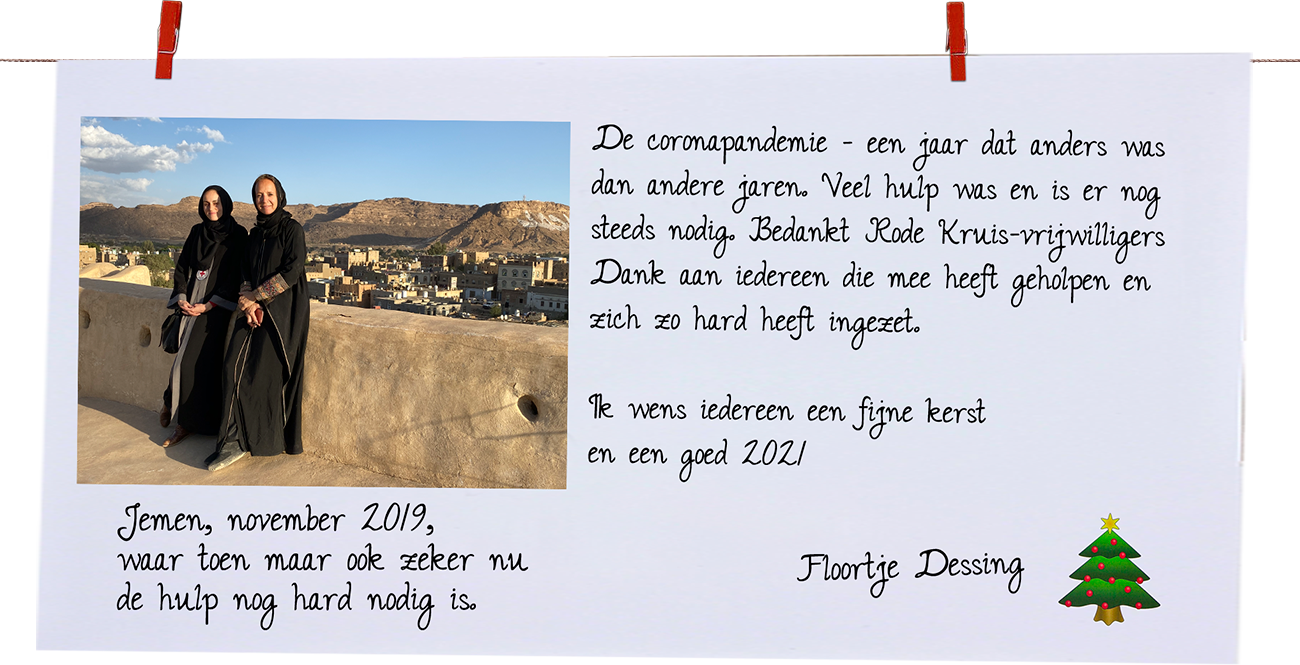 De coronapandemie - een jaar dat anders was
dan andere jaren. Veel hulp was en is er nog
steeds nodig. Bedankt Rode Kruis-vrijwilligers
Dank aan iedereen die mee heeft geholpen en
zich zo hard heeft ingezet.
Ik wens iedereen een fijne kerst
en een goed 2021
Jemen, november 2019,
waar toen maar ook zeker nu
de hulp nog hard nodig is.
Floortje Dessing